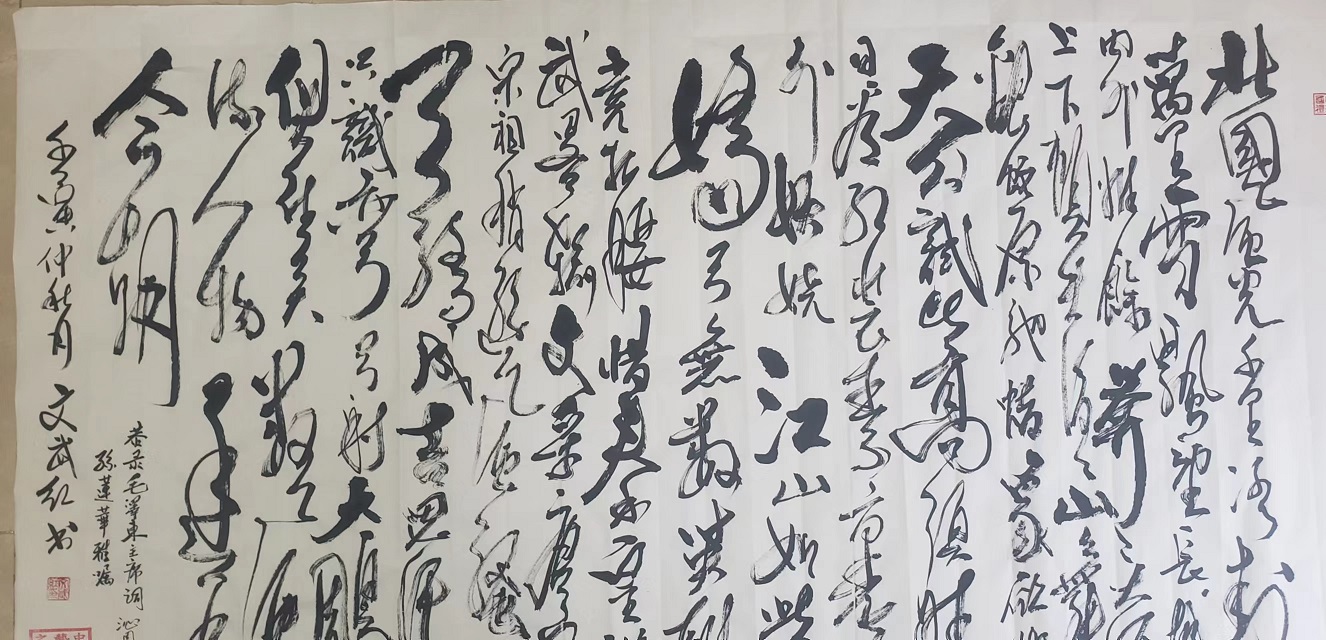 北國風光千里冰封
萬里雪飄望長城
内外惟餘莽=大河
上下頓失滔=山舞
銀蛇原馳蜡象欲
天公試比高須晴
日看红装素裹
外妖娆江山如此
嬌引無數英雄
竞折腰惜秦皇漢
武略输文采唐宗
宋祖稍逊風骚
天骄成吉思汗
只識彎弓射大雕
俱往矣數風
流人物还看
今朝
壬寅仲秋月文武红书
恭录毛澤東主席词沁园
孫蓮華雅嘱